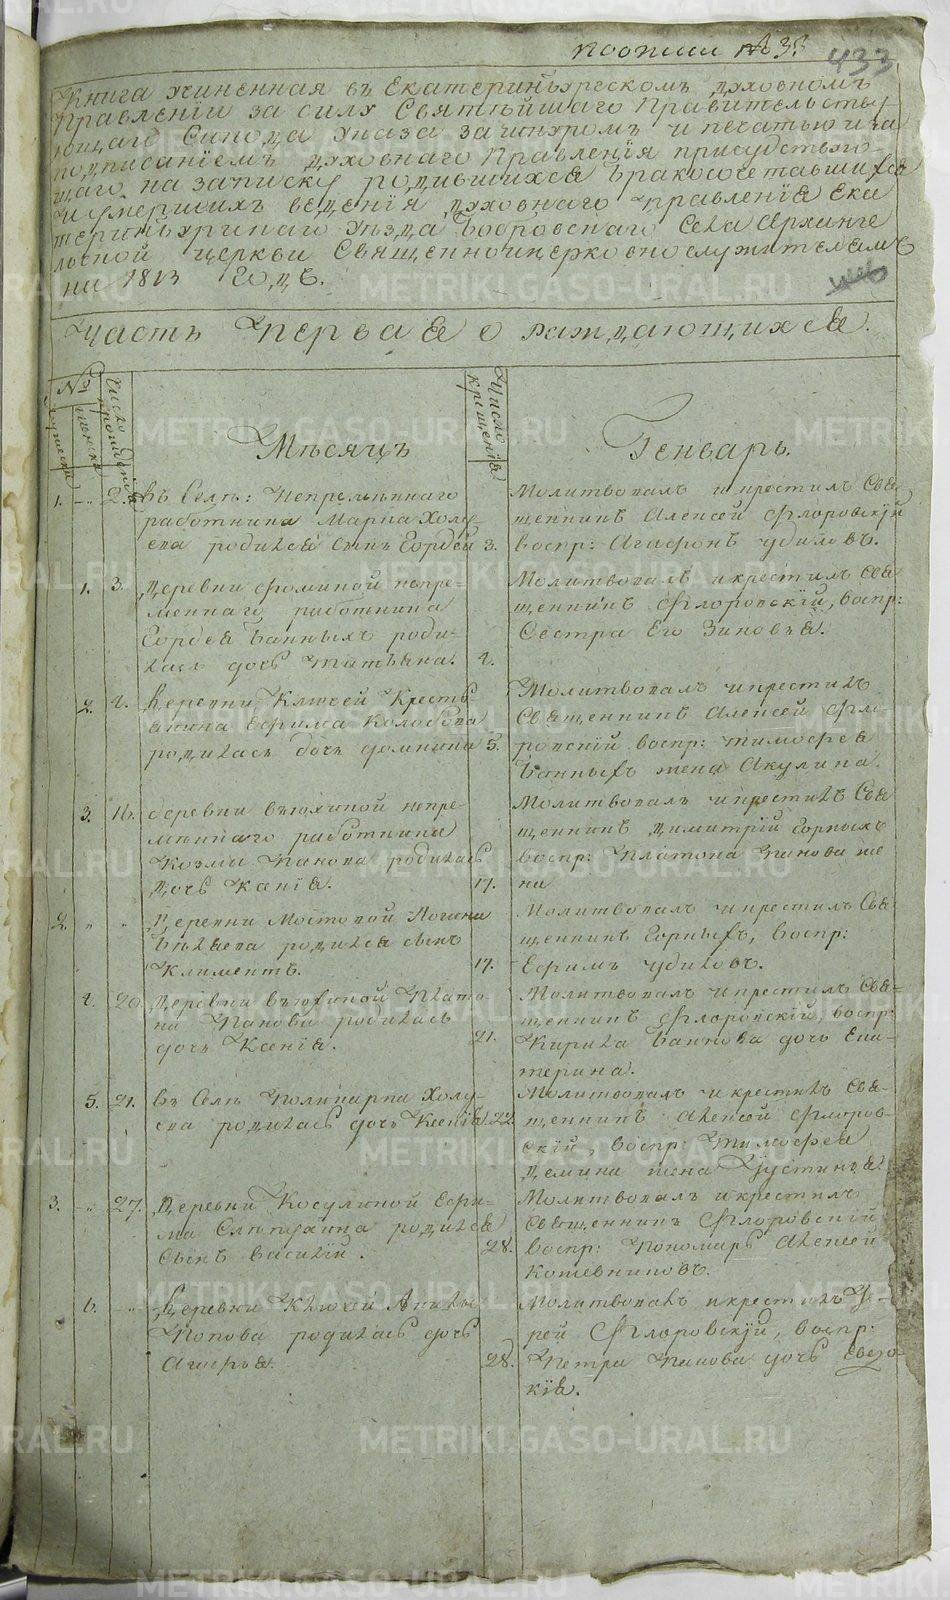 по описи № 35.
433
Книга учиненная въ Екатеринбургскомъ духовномъ
Правленіи за силу Святѣйшаго Правительству-
ющаго Синода указа за шнуромъ и печатью и за
подписаніемъ духовнаго Правленія присудствую-
щаго на записку родившихся бракосочетавшихся
и умершихъ веденія духовнаго правленія Ека
теринбургскаго уѣзда Бобровскаго Села Арханге
льской церкви Священноицерковнослужителемъ
на 1813 годъ.
Часть Первая о раждающихся.
№
мужеска
женска
Число рожденія
Мѣсяцъ
Число крещенія
Генварь.
1. -"- 2. Въ Селѣ: Непремѣннаго
работника Марка Холу-
ева родился сынъ Гордей 3.
Молитвовалъ и крестилъ Свя-
щенникъ Алексей Флоровскій
воспр: Агафонъ Удиловъ.
1. 3. Деревни Фоминой непре-
меннаго работника
Гордея Банныхъ роди-
лась дочь Татьяна. 4.
Молитвовалъ и крестилъ Свя-
щенникъ Флоровскій, воспр:
Сестра Его Зиновья.
2. 4. Деревни Ключей Кресть
янина Ефима Колобова
родилась дочь Домника 5.
Молитвовалъ и крестилъ
Священникъ Алексей Фло-
ровскій воспр: Тимофея
Банныхъ жена Акулина.
3. 16. деревни Вьюхиной непре-
мѣннаго работника
Козмы Панова родилась
дочь Ксенія. 17.
Молитвовалъ и крестилъ Свя
щенникъ Димитрій Горныхъ
воспр: Платона Панова же
на
2. " " Деревни Мостовой Логина
Бѣляева родился сынъ
Климентъ. 17.
Молитвовалъ и крестилъ Свя-
щенникъ Горныхъ, воспр:
Ефимъ Удиловъ.
4. 20. Деревни Вьюхиной Плато
на Панова родилась
дочь Ксенія. 21.
Молитвовалъ и крестилъ Свя-
щенникъ Флоровскій, воспр:
Кирила Банкова дочь Ека-
терина.
5. 21. Въ Селѣ Поликарпа Холу-
ева родилась дочь Ксенія 22.
Молитвовалъ и крестилъ Свя-
щенникъ Алексей Флоров-
скій, воспр: Тимофея
Демина жена Устинья.
3. -"- 27. Деревни Косулиной Ефи-
ма родился
сынъ Василій. 28.
Молитвовалъ и крестилъ
Священникъ Флоровскій
воспр: Пономарь Алексей
Котевниковъ.
6. -"- Деревни Ключей Аники
Попова родилась дочь
Агафья. 28.
Молитвовалъ и крестилъ Іе-
рей Флоровскій, воспр:
Петра Панова дочь Евдо-
кія.